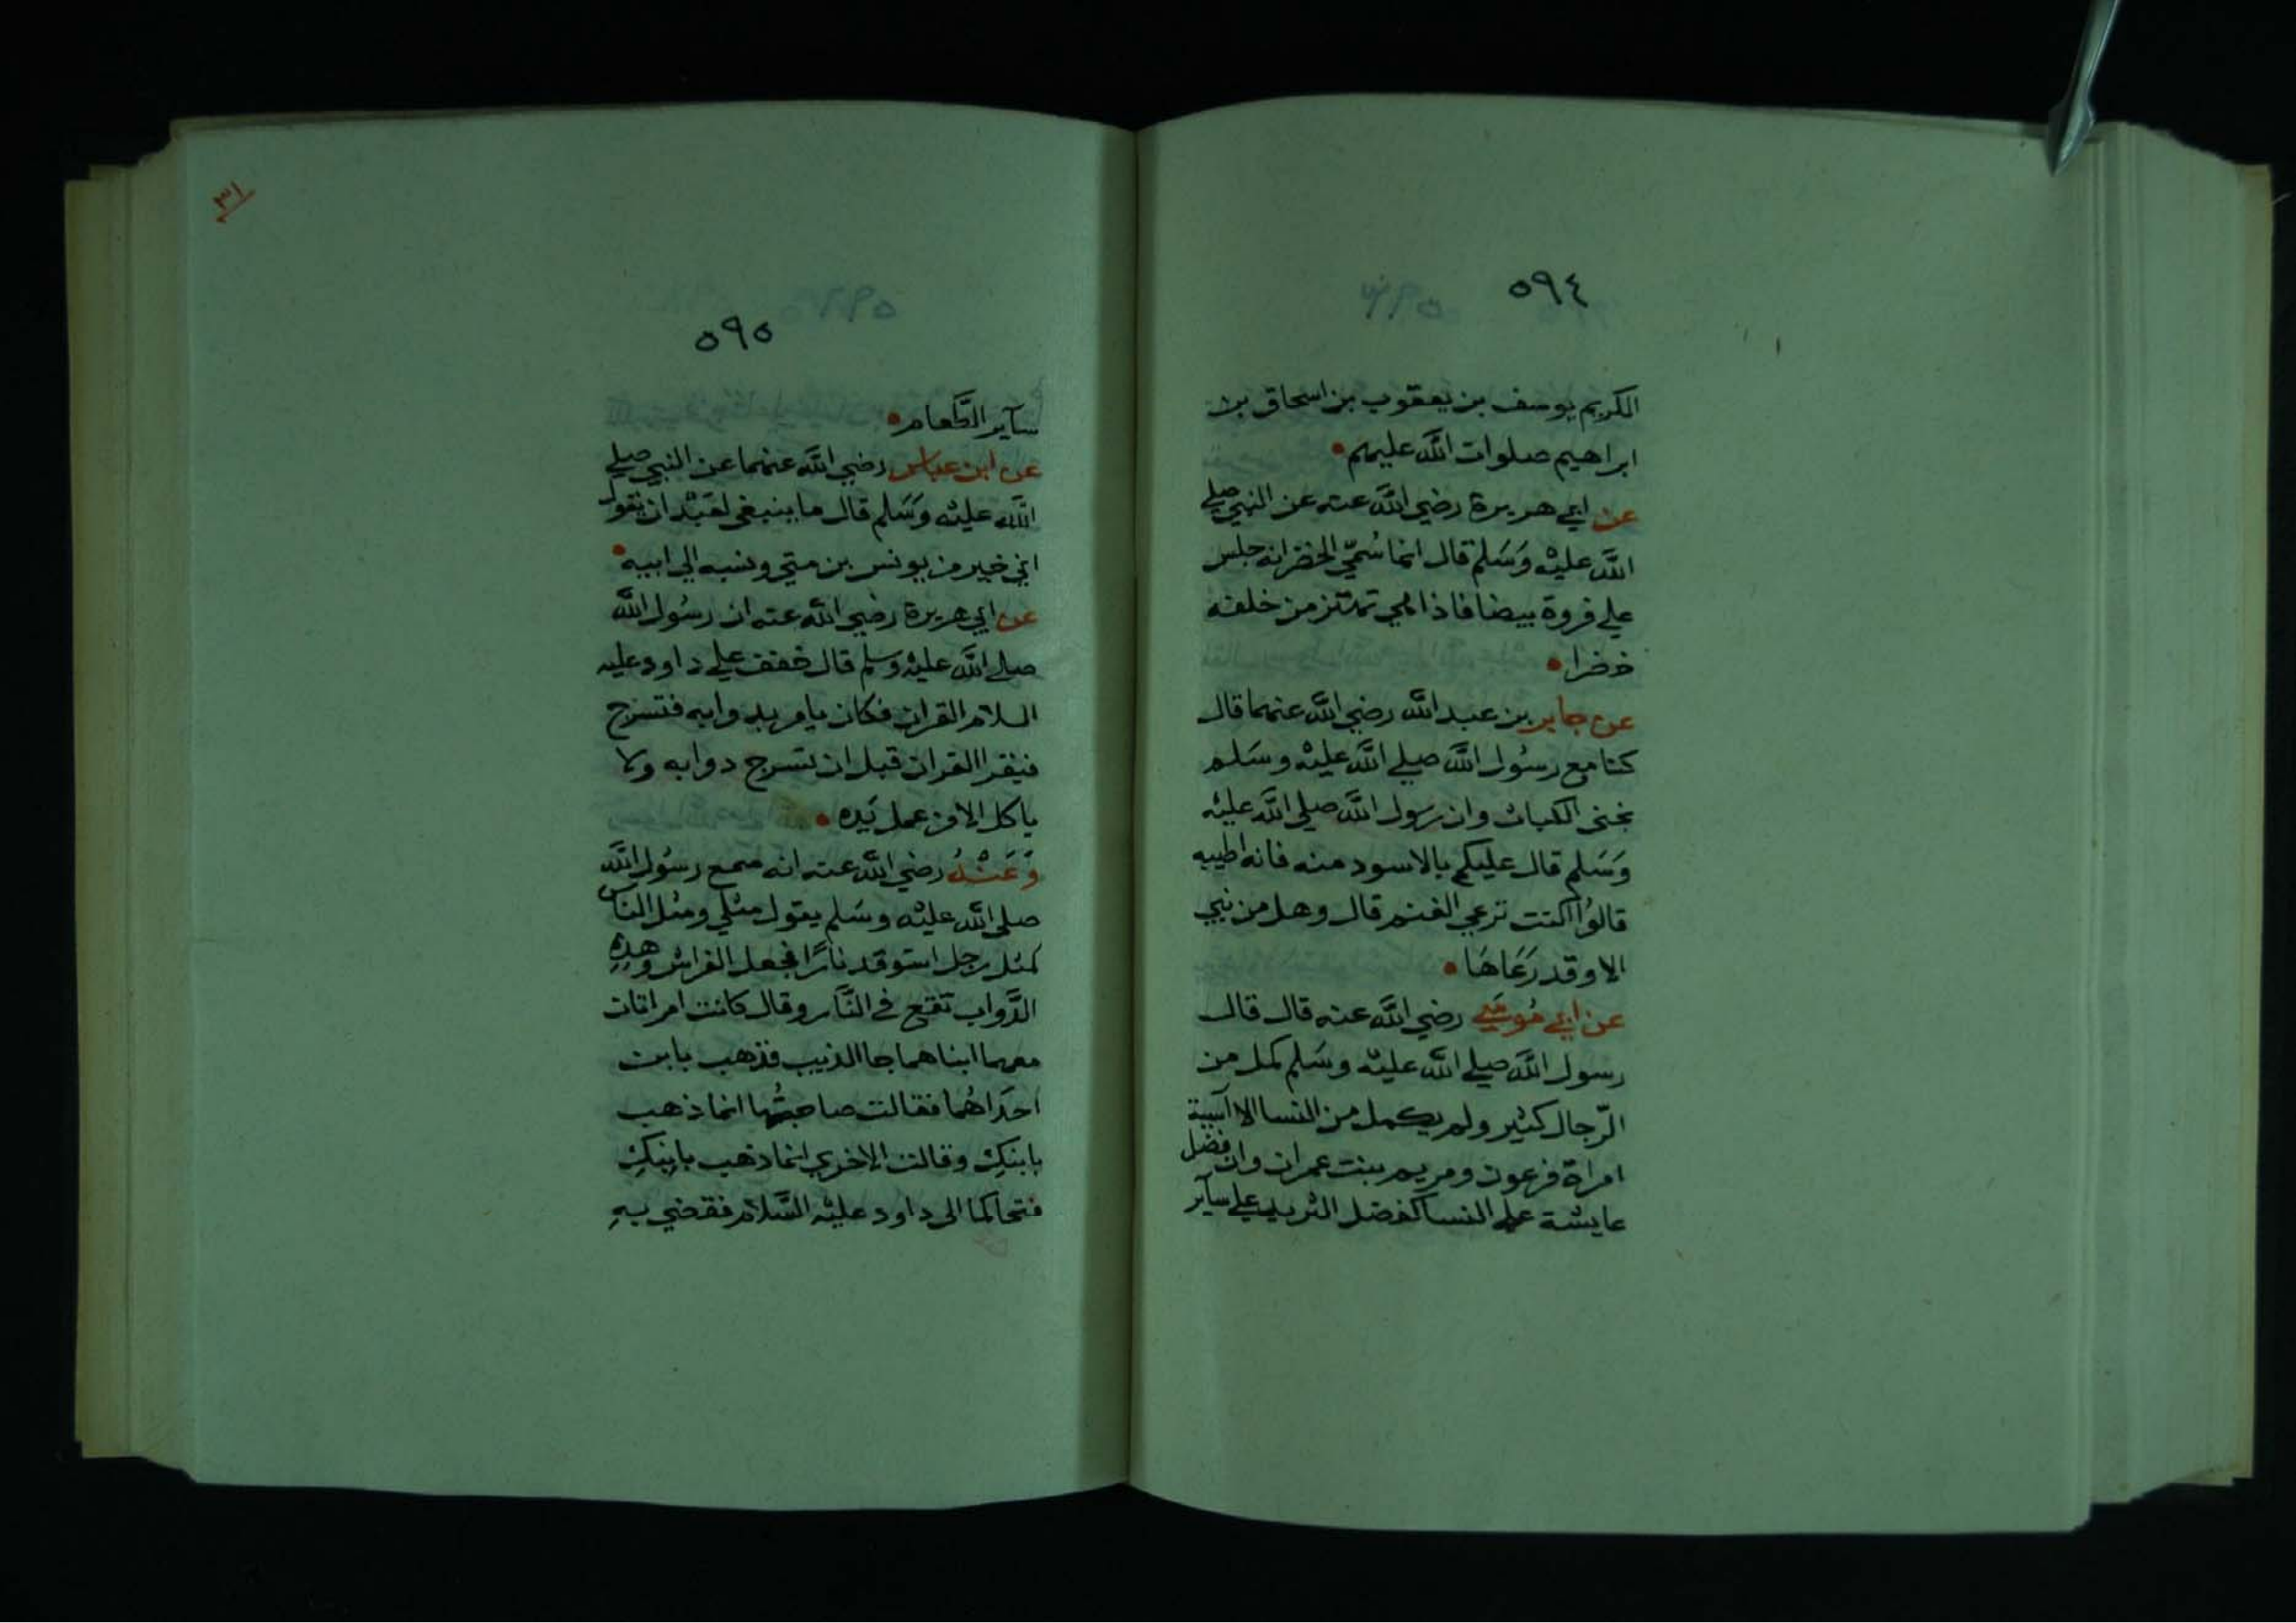 ٥٩٤
الكريم يوسف بن يعقوب بن اسحاق بن
ابراهيم صلوات الله عليهم
عن ابي هريرة رضي الله عنه عن النبي صلي
الله عليه وَسَلم قال انما سُمّي الخضر انه جلس
علي فروة بيضا فاذا هي تهتز من خلفه
خضرا
عن جابر بن عبد الله رضي الله عنهما قال
كنا مع رسُول الله صلي الله عليه وسَلم
نجني الكباث وان رسول الله صلي الله عليه
وَسَلم قال عليكم بالاسود منه فانه اطيبه
قالوُا اكنت ترعي الغنم قال وهل من نبي
الا وقد رَعَاهَا
عن ابي مُوسَي رضي الله عنه قال قال
رسول الله صلي الله عليه وسَلم كمل من
الرّجال كثير ولم يكمل من النسا الا آسية
امراة فرعون ومريم بنت عمران وان فضل
عايشة علي النسا كفضل الثريد علي سآير
٣١
٥٩٥
سآير الطَّعام
عن ابن عباس رضي الله عنهما عن النبي صلي
الله عليه وَسَلم قال ما ينبغي لعَبْد ان يقول
اني خير من يونس بن متي ونسبه الي ابيه
عن ابي هريرة رضي الله عنه ان رسُول الله
صلي الله عليه وسلم قال خفف علي داود عليه
السلام القران فكان يامر بدوابه فتسرج
فيقرا القران قبل ان تسرج دوابه ولا
ياكل الا من عمل يَده
وَعَنْهُ رضي الله عنه انه سمع رسُول الله
صلي الله عليه وسَلم يقول مثلي ومثل الناس
كمثل رجل استوقد نارًا فجعل الفراش وهذِهِ
الدَّواب تقع في النَّار وقال كانت امراتان
معهما ابناهما جا الذيب فذهب بابن
احدَاهُما فقالت صاحبتُها انما ذهب
بابنكِ وقالت الاخري انما ذهب بابنِكِ
فتحاكما الى داود عليه السَّلام فقضي بهِ